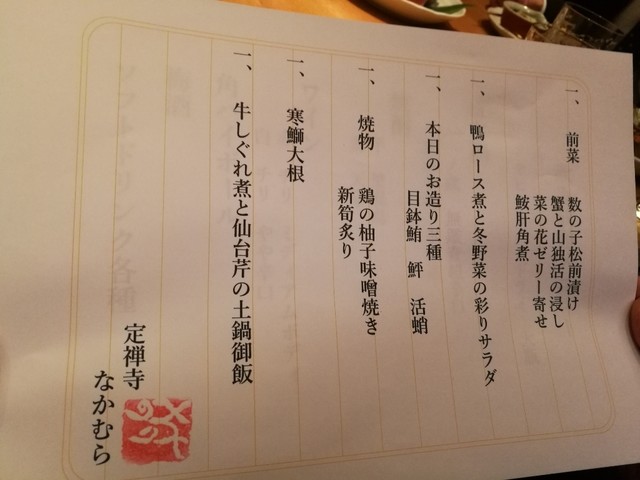 一、前菜 数の子松前漬け
蟹と山独活の浸し
菜の花ゼリー寄せ
鮟肝角煮
一、鴨ロース煮と冬野菜の彩りサラダ
一、本日のお造り三種
目鉢鮪 鮃 活蛸
一、焼物 鶏の柚子味噌焼き
新筍炙り
一、寒鰤大根
一、牛しぐれ煮と仙台芹の土鍋御飯
定禅寺
なかむら